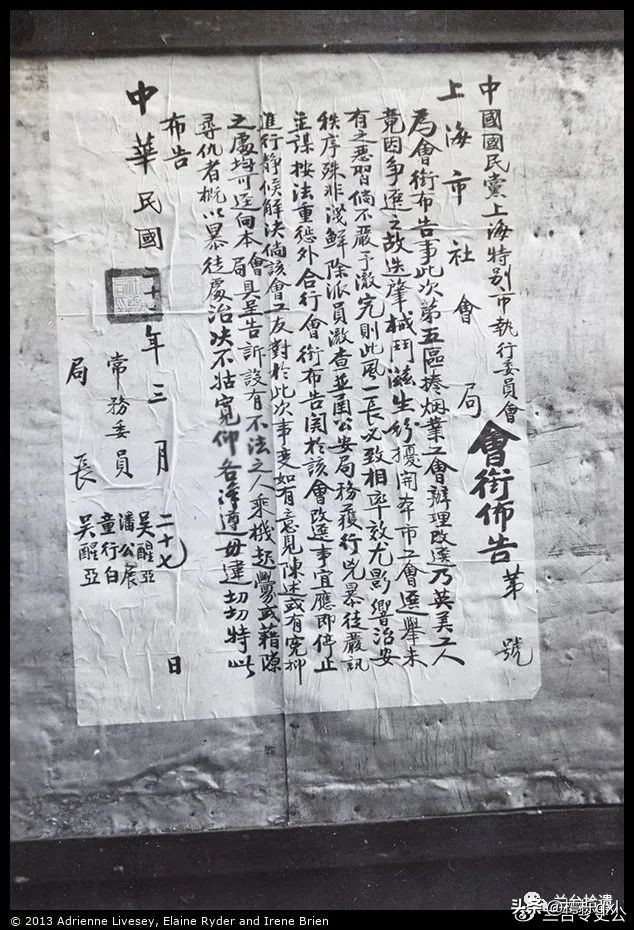 中國國民黨上海特别市執行委員會
上海市社會局
會銜佈告 第 號
爲會銜布告事此次第五區捲烟業工會辦理改選乃英美工人
竟因争選之故迭肇械鬥滋生紛擾開本市工會選舉未
有之惡習倘不嚴予澈究則此風一長必致相率效尤影響治安
秩序殊非淺鮮除派員澈查並函公安局務獲行兇暴徒嚴訊
主謀按法重懲外合行會銜布告関於該會改選事宜應即停止
進行静候解决倘該會工友對於此次事变如有意見陳述或有冤抑
之處均可逕向本會局具呈告訴設有不法之人乘機起釁或藉隙
尋仇者概以暴徒處治决不姑寬仰各凛遵毋違切切特此
布告
中華民國二十 年三月二十七日
常務委員 吳醒亞 潘公展 童行白
局長 吳醒亞
© 2013 Adrienne Livesey, Elaine Ryder and Irene Brien
兰台拾遗